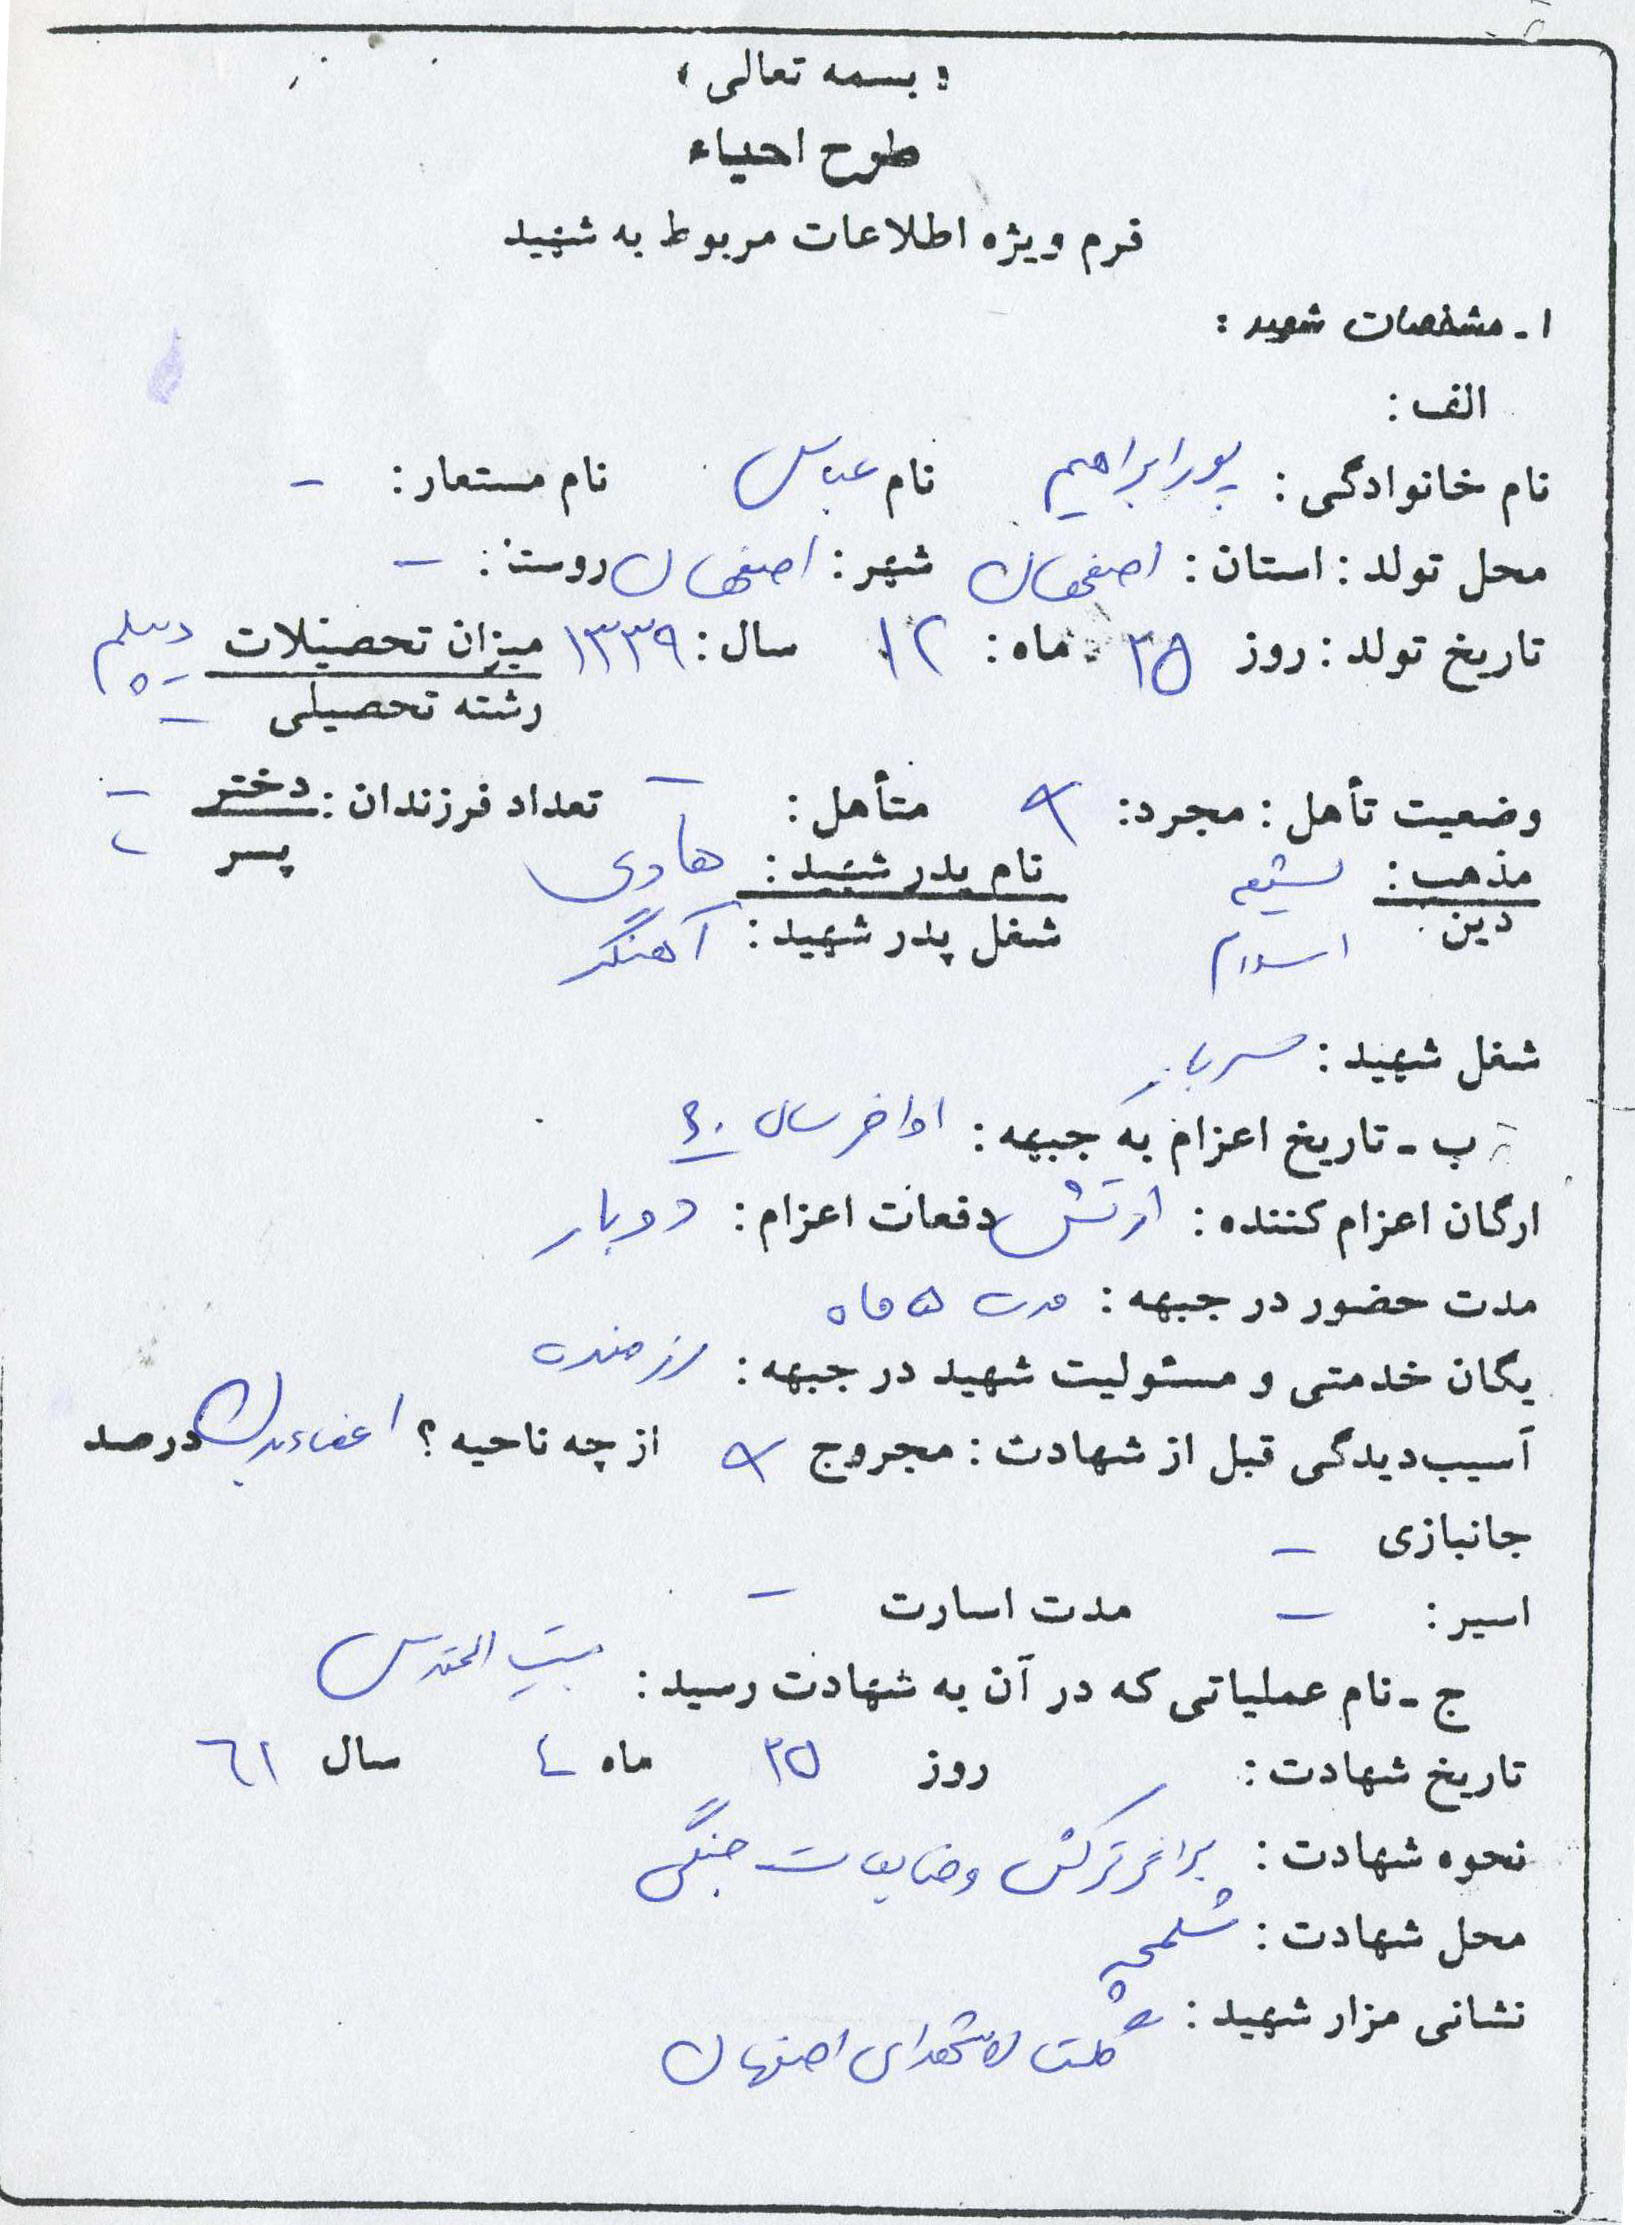 « بسمه تعالی »
طرح احیاء
فرم ویژه اطلاعات مربوط به شهید
۱ - مشخصات شهید :
الف :
نام خانوادگی : پورابراهیم نام عباس نام مستعار : -
محل تولد : استان : اصفهان شهر : اصفهان روستا : -
تاریخ تولد : روز ۲۵ ماه : ۱۲ سال : ۱۳۳۹ میزان تحصیلات دیپلم
رشته تحصیلی -
وضعیت تأهل : مجرد : متأهل : - تعداد فرزندان : دختر -
پسر -
مذهب : شیعه نام پدر شهید : هادی
دین : اسلام شغل پدر شهید : آهنگر
شغل شهید : سرباز
ب - تاریخ اعزام به جبهه : اواخر سال ۶۰
ارگان اعزام کننده : ارتش دفعات اعزام : دوبار
مدت حضور در جبهه : مدت ۵ ماه
یگان خدمتی و مسئولیت شهید در جبهه : رزمنده
آسیب‌دیدگی قبل از شهادت : مجروح از چه ناحیه ؟ اعضاء بدن درصد
جانبازی -
اسیر : - مدت اسارت -
ج - نام عملیاتی که در آن به شهادت رسید : بیت المقدس
تاریخ شهادت : روز ۲۵ ماه ۴ سال ۶۱
نحوه شهادت : براثر ترکش وضایعات جنگی
محل شهادت : شلمچه
نشانی مزار شهید :
گلستان شهدای اصفهان